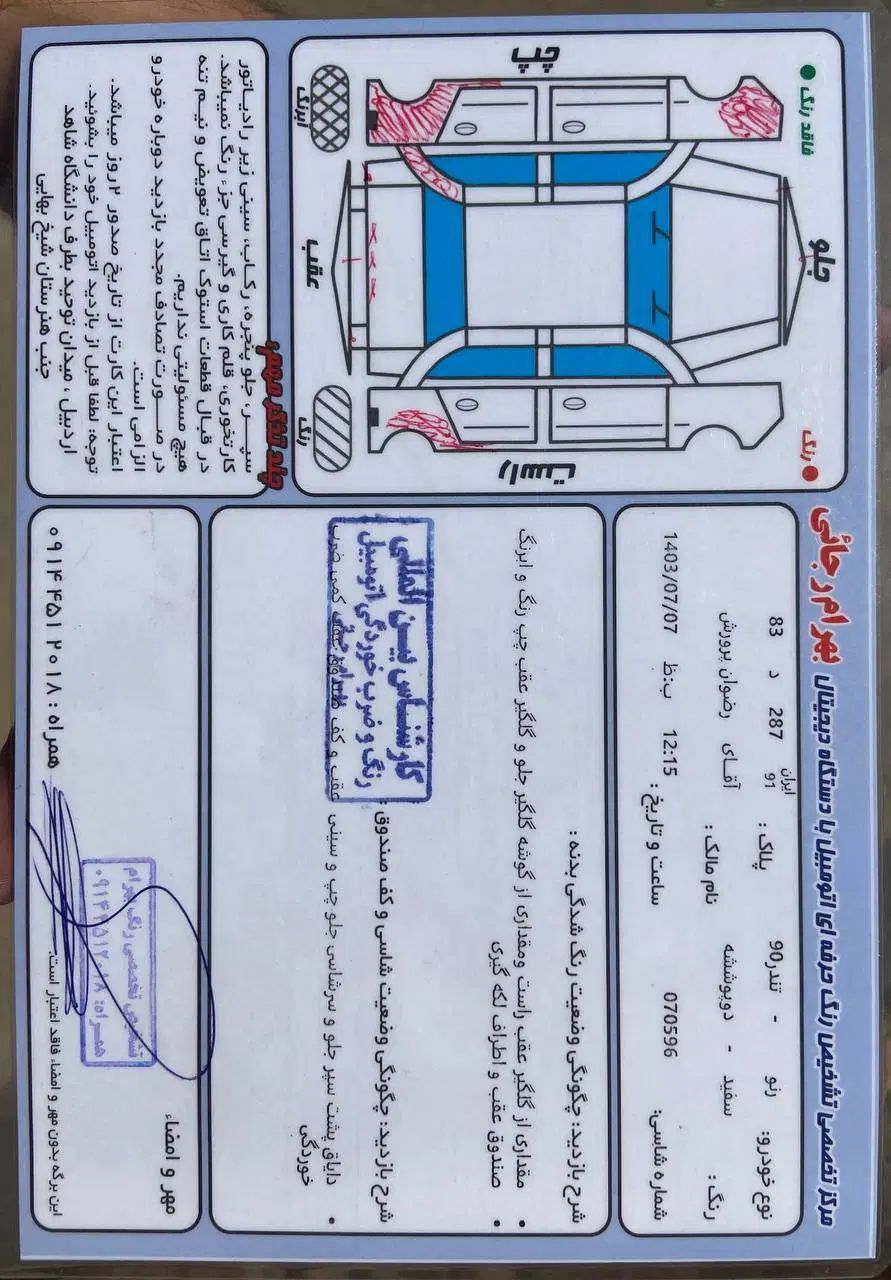 مرکز تخصصی تشخیص رنگ حرفه ای اتومبیل با دستگاه دیجیتال بهرام رجائی
نوع خودرو: رنو - تندر90
پلاک: ایران 91 287 د 83
رنگ: سفید - دوپوششه
نام مالک: آقای رضوان پرورش
شماره شاسی: 070596
ساعت و تاریخ: 12:15 ب:ظ 1403/07/07
شرح بازدید: چگونگی وضعیت رنگ شدگی بدنه:
• مقداری از گلگیر عقب راست ومقداری از گوشه گلگیر جلو و گلگیر عقب چپ رنگ و ابرنگ
صندوق عقب و اطراف لکه گیری
شرح بازدید: چگونگی وضعیت شاسی و کف صندوق:
• داباق پشت سپر جلو و سرشاسی جلو چپ و سینی عقب و کف صندوق عقب کمی ضرب
خوردگی
کارشناس بین المللی
رنگ و ضرب خوردگی اتومبیل
مهر و امضاء
تشخیص تخصصی رنگ بهرام
همراه: ۰۹۱۴۴۵۱۲۰۱۸
این برگه بدون مهر و امضاء فاقد اعتبار است.
همراه: ۰۹۱۴ ۴۵۱ ۲۰۱۸
فاقد رنگ
رنگ
چپ
جلو
عقب
راست
آبرنگ
رنگ
چند تذکر مهم:
سپر، جلو پنجره، رکاب، سینی زیر رادیاتور
کارتخوری، قلم کاری و گیرسی جزء رنگ نمیباشد.
در قبال قطعات استوک اتاق تعویض و نیم تنه
هیچ مسئولیتی نداریم.
در صورت تصادف مجدد بازدید دوباره خودرو
الزامی است.
اعتبار این کارت از تاریخ صدور ۲روز میباشد.
توجه: لطفا قبل از بازدید اتومبیل خود را بشوئید.
اردبیل، میدان توحید بطرف دانشگاه شاهد
جنب هنرستان شیخ بهایی